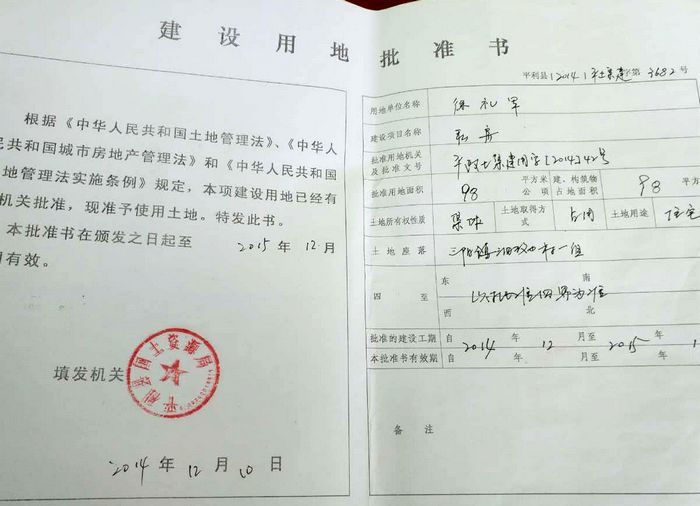 建设用地批准书
根据《中华人民共和国土地管理法》、《中华人
民共和国城市房地产管理法》和《中华人民共和国
地管理法实施条例》规定，本项建设用地已经有
机关批准，现准予使用土地。特发此书。
本批准书在颁发之日起至 2015 年 12 月
有效。
填发机关
平利县国土资源局
2014 年 12 月 10 日
平利县(2014)平土集建字第3682号
用地单位名称 徐礼军
建设项目名称 私房
批准用地机关
及批准文号 平政土集建用字[2014]42号
批准用地面积 98 平方米 公顷 建、构筑物占地面积 98 平方
土地所有权性质 集体 土地取得方式 占用 土地用途 住宅
土地座落 三阳镇 村一组
四至 东 南
西 北
以 四界为准
批准的建设工期 自 2014 年 12 月至 2015 年 1
本批准书有效期 自 年 月至 年
备注